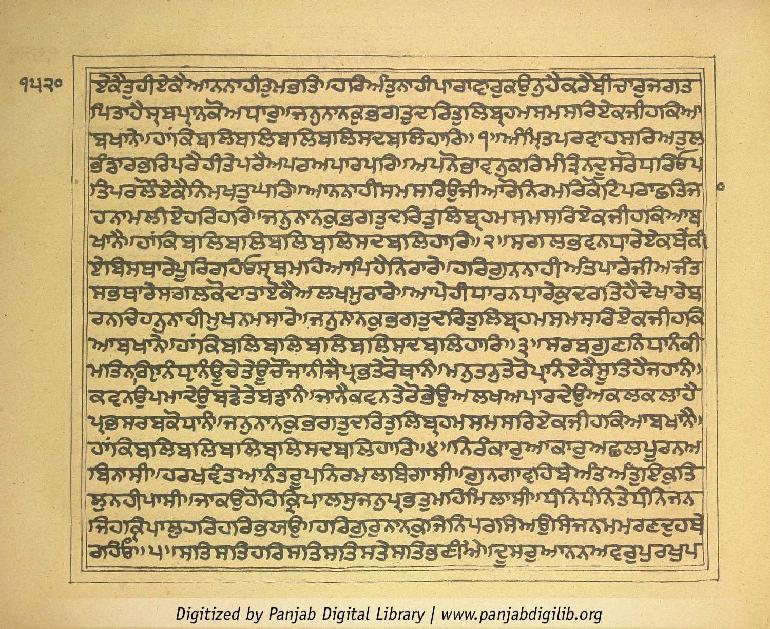 ੧੫੨੦
ਏਕੈਤੁਹੀਏਕੈਆਨਨਾਹੀਤੁਮਭਤਿ॥ਹਰਿਅੰਤੁਨਾਹੀਪਾਰਾਵਾਰੁਕਉਨੁਹੈਕਰੈਬੀਚਾਰੁਜਗਤ
ਪਿਤਾਹੈਸ੍ਰਬਪ੍ਰਾਨਕੋਅਧਾਰੁ॥ਜਨੁਨਾਨਕੁਭਗਤੁਦਰਿਤੁਲਿਬ੍ਰਹਮਸਮਸਰਿਏਕਜੀਹਕਿਆ
ਬਖਾਨੈ॥ਹਾਂਕਿਬਲਿਬਲਿਬਲਿਬਲਿਸਦਬਲਿਹਾਰਿ॥੧॥ਅੰਮ੍ਰਿਤਪਰਵਾਹਸਰਿਅਤੁਲ
ਭੰਡਾਰਭਰਿਪਰੈਹੀਤੇਪਰੈਅਪਰਅਪਾਰਪਰਿ॥ਆਪਨੋਭਾਵਨੁਕਰਿਮੰਤ੍ਰਿਨਦੂਸਰੋਧਰਿਓਪ
ਤਿਪਰਲੌਏਕੈਨਿਮਖਤੁਘਰਿ॥ਆਨਨਾਹੀਸਮਸਰਿਉਜੀਆਰੋਨਿਰਮਰਿਕੋਟਿਪਰਾਛਤਜ
ਹਨਾਮਲੀਏਹਰਿਹਰਿ॥ਜਨੁਨਾਨਕੁਭਗਤੁਦਰਿਤੁਲਿਬ੍ਰਹਮਸਮਸਰਿਏਕਜੀਹਕਿਆਬ
ਖਾਨੈ॥ਹਾਂਕਿਬਲਿਬਲਿਬਲਿਬਲਿਸਦਬਲਿਹਾਰਿ॥੨॥ਸਗਲਭਵਨਧਾਰੇਏਕਥੇਂਕੀ
ਏਬਿਸਥਾਰੇਪੂਰਿਰਹਿਓਸ੍ਰਬਮਹਿਆਪਿਹੈਨਿਰਾਰੇ॥ਹਰਿਗੁਨਨਾਹੀਅੰਤਪਾਰੇਜੀਅਜੰਤ
ਸਭਥਾਰੇਸਗਲਕੋਦਾਤਾਏਕੈਅਲਖਮੁਰਾਰੇ॥ਆਪੇਹੀਧਾਰਨਧਾਰੇਕੁਦਰਤਿਹੈਦੇਖਾਰੇਬ
ਰਨਾਚਿਹਨੁਨਾਹੀਮੁਖਨਮਸਾਰੇ॥ਜਨੁਨਾਨਕੁਭਗਤੁਦਰਿਤੁਲਿਬ੍ਰਹਮਸਮਸਰਿਏਕਜੀਹਕਿ
ਆਬਖਾਨੈ॥ਹਾਂਕਿਬਲਿਬਲਿਬਲਿਬਲਿਸਦਬਲਿਹਾਰਿ॥੩॥ਸਰਬਗੁਣਨਿਧਾਨੰਕੀ
ਮਤਿਨਗ੍ਯਾਨੰਧ੍ਯਾਨੰਊਚੇਤੇਊਚੌਜਾਨੀਜੈਪ੍ਰਭਤੇਰੋਥਾਨੰ॥ਮਨੁਤਨੁਤੇਰੋਪ੍ਰਾਨੰਏਕੈਸੂਤਿਹੈਜਹਾਨੰ
ਕਵਨਉਪਮਾਦੇਉਬਡੇਤੇਬਡਾਨੰ॥ਜਾਨੈਕਵਨਤੇਰੋਭੇਉਅਲਖਅਪਾਰਦੇਉਅਕਲਕਲਾਹੈ
ਪ੍ਰਭਸਰਬਕੋਧਾਨੰ॥ਜਨੁਨਾਨਕੁਭਗਤੁਦਰਿਤੁਲਿਬ੍ਰਹਮਸਮਸਰਿਏਕਜੀਹਕਿਆਬਖਾਨੈ
ਹਾਂਕਿਬਲਿਬਲਿਬਲਿਬਲਿਸਦਬਲਿਹਾਰਿ॥੪॥ਨਿਰੰਕਾਰੁਆਕਾਰੁਅਛਲਪੂਰਨਅ
ਬਿਨਾਸੀ॥ਹਰਖਵੰਤਆਨੰਤਰੂਪਨਿਰਮਲਬਿਗਾਸੀ॥ਗੁਨਗਾਵਹਿਬੇਅੰਤਅੰਤੁਇਕੁਤਿ
ਲੁਨਹੀਪਾਸੀ॥ਜਾਕਉਹੋਂਹਿਕ੍ਰਿਪਾਲਸੁਜਨੁਪ੍ਰਭਤੁਮਹਿਮਿਲਾਸੀ॥ਧੰਨਿਧੰਨਿਤੇਧੰਨਿਜਨ
ਜਿਹਕ੍ਰਿਪਾਲੁਹਰਿਹਰਿਭਯਉ॥ਹਰਿਗੁਰੁਨਾਨਕੁਜਿਨਪਰਸਿਅਉਸਿਜਨਮਮਰਣਦੁਹਥੇ
ਰਹਿਓ॥੫॥ਸਤਿਸਤਿਹਰਿਸਤਿਸਤਿਸਤੇਸਤਿਭਣੀਐ॥ਦੂਸਰਆਨਨਅਵਰੁਪੁਰਖੁਪ
Digitized by Panjab Digital Library | www.panjabdigilib.org